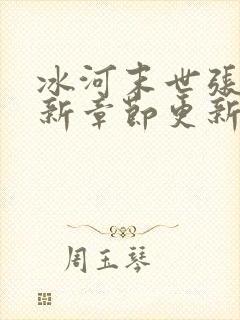 冰河末世張
新章節更新
周玉琴